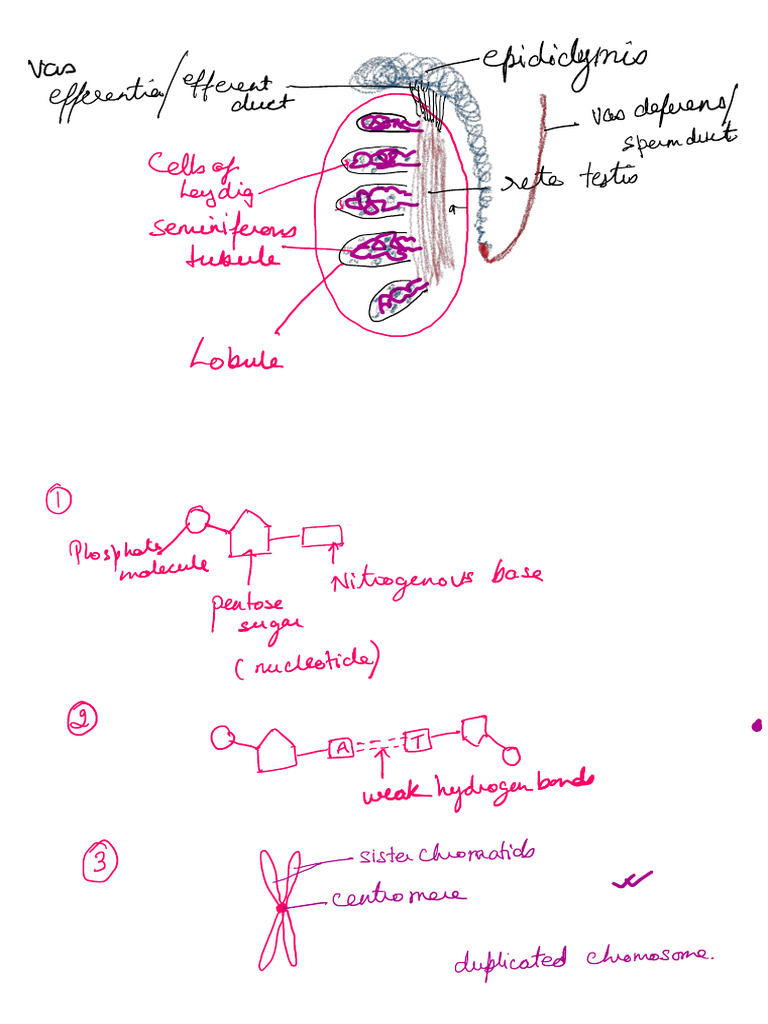 vas
efferentia/efferent
duct
epididymis
vas deferens/
sperm duct
Cells of
Leydig
rete testis
seminiferous
tubule
Lobule
1
Phosphate
molecule
Nitrogenous base
pentose
sugar
(nucleotide)
2
A
T
weak hydrogen bonds
3
sister chromatids
centromere
duplicated chromosome.